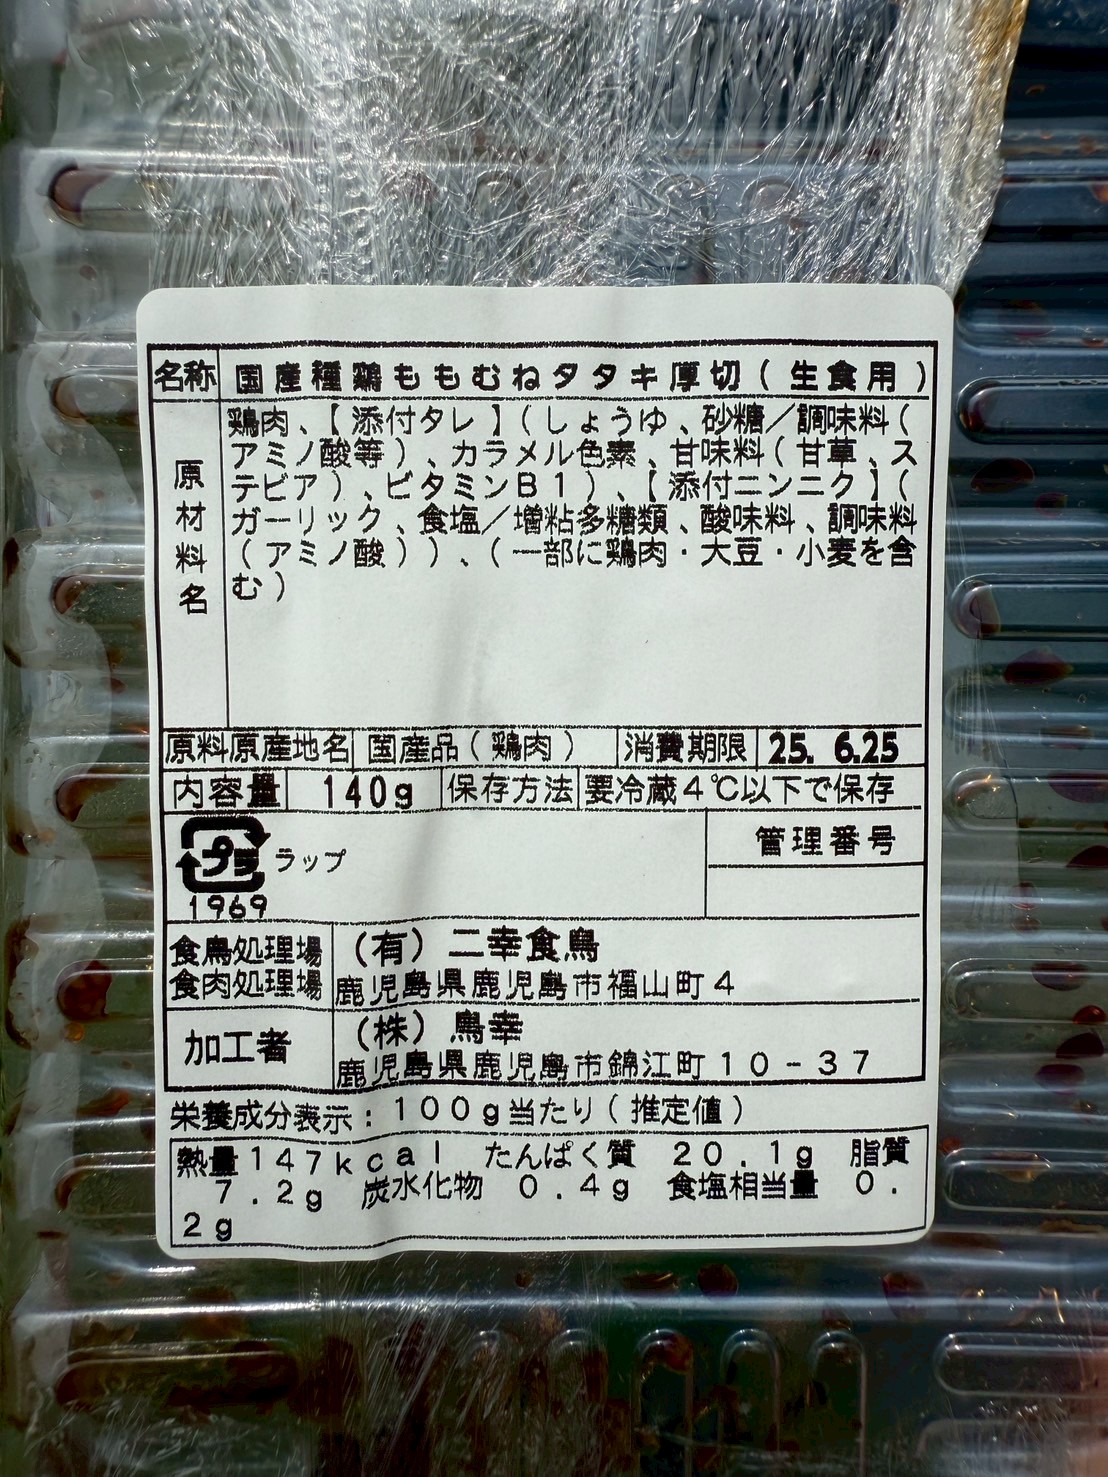 名称 国産種鶏ももむねタタキ厚切(生食用)
原材料名 鶏肉、【添付タレ】(しょうゆ、砂糖／調味料(
アミノ酸等)、カラメル色素、甘味料(甘草、ス
テビア)、ビタミンB1)、【添付ニンニク】(
ガーリック、食塩／増粘多糖類、酸味料、調味料
(アミノ酸))、(一部に鶏肉・大豆・小麦を含
む)
原料原産地名 国産品(鶏肉) 消費期限 25. 6.25
内容量 140g 保存方法 要冷蔵4℃以下で保存
プラ ラップ 管理番号
1969
食鳥処理場 (有)二幸食鳥
食肉処理場 鹿児島県鹿児島市福山町4
加工者 (株)鳥幸
鹿児島県鹿児島市錦江町10-37
栄養成分表示:100g当たり(推定値)
熱量147kcal たんぱく質 20.1g 脂質
7.2g 炭水化物 0.4g 食塩相当量 0.
2g